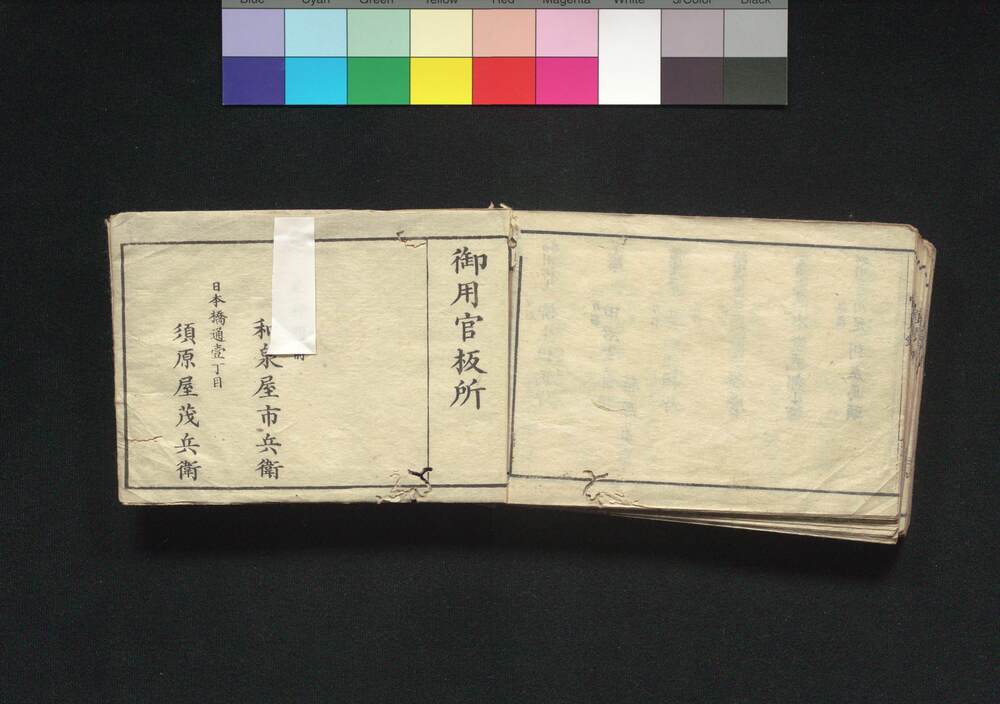 Blue Cyan Green Yellow Red Magenta White 3/Color Black
御用官板所
前
和泉屋市兵衛
日本橋通壹丁目
須原屋茂兵衛